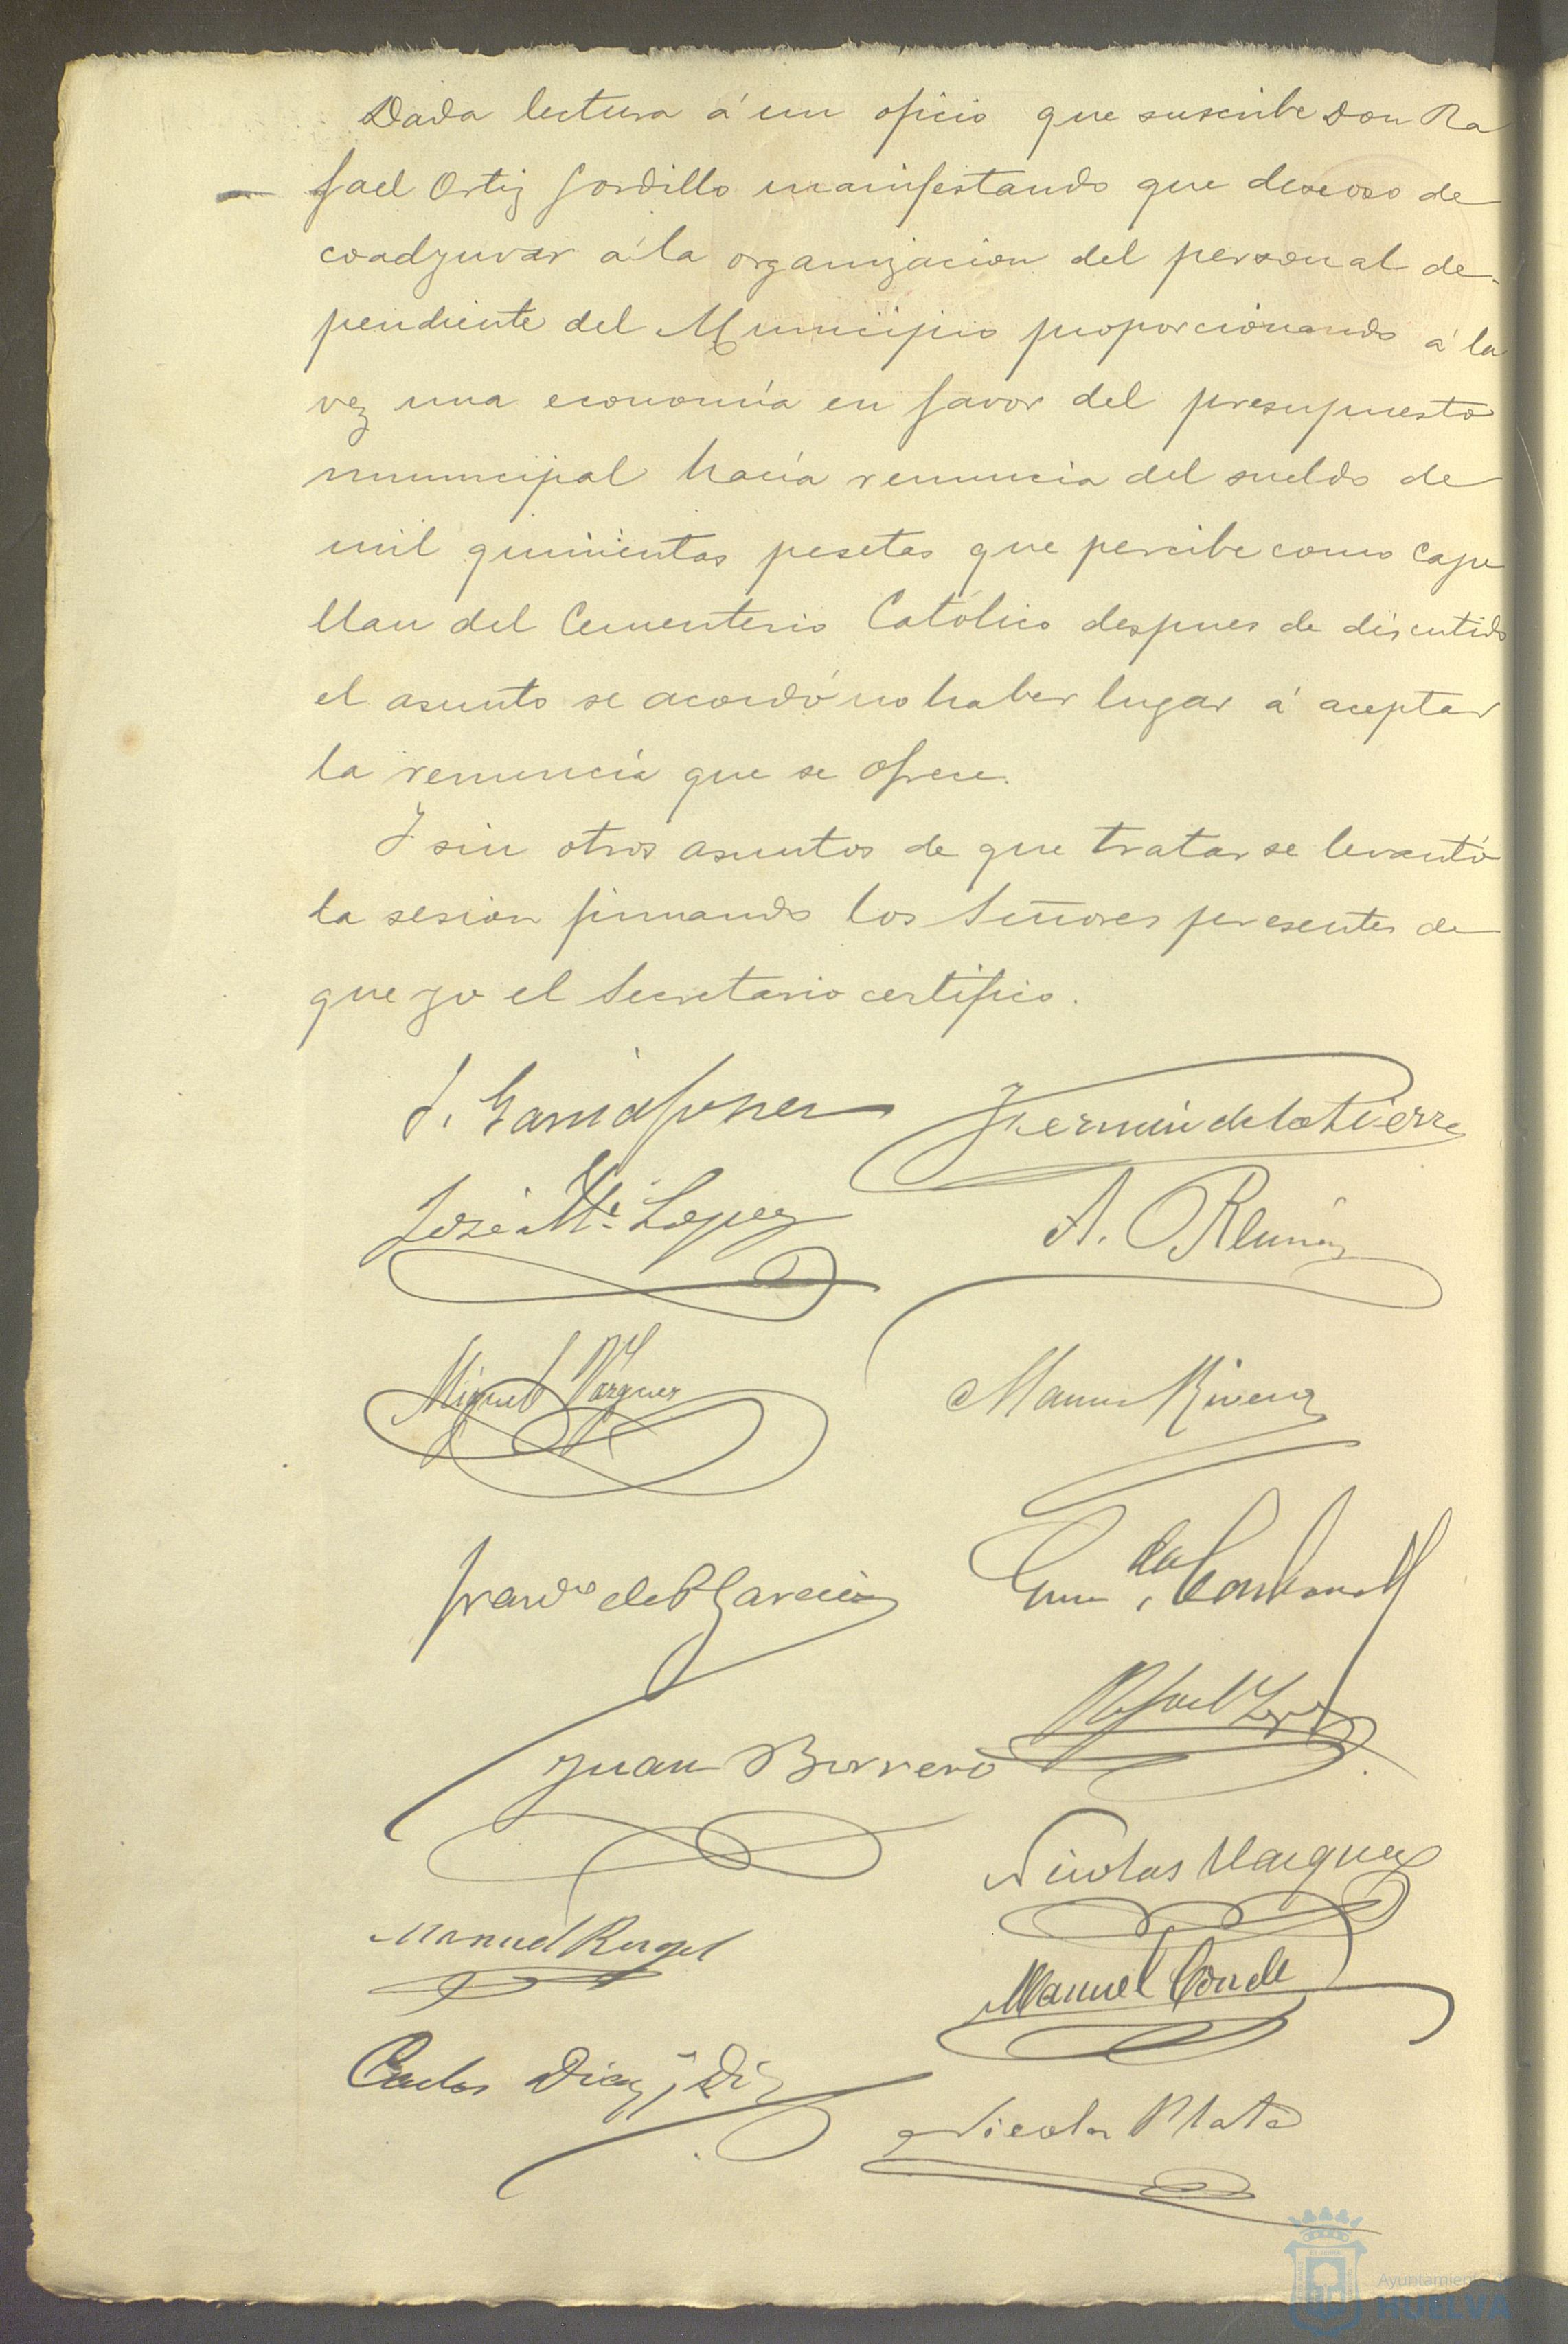 Dada lectura á un oficio que suscribe Don Ra
fael Ortiz Gordillo manifestando que deseoso de
coadyuvar á la organizacion del personal de-
pendiente del Municipio proporcionando á la
vez una economía en favor del presupuesto
municipal hacía renuncia del sueldo de
mil quinientas pesetas que percibe como cape
llan del Cementerio Católico despues de discutido
el asunto se acordó no haber lugar á aceptar
la renuncia que se ofrece.
Y sin otros asuntos de que tratar se levantó
la sesion firmando los Señores presentes de
que yo el Secretario certifico.
Fermin de la
José Mª Lopez
A.
Miguel Vazquez
Rivera
de P. Garcia
Rafael
Juan Borrero
Nicolas Vazquez
Manuel
Manuel Conde
Carlos Diaz y
Nicolas Plata
Ayuntamiento
HUELVA